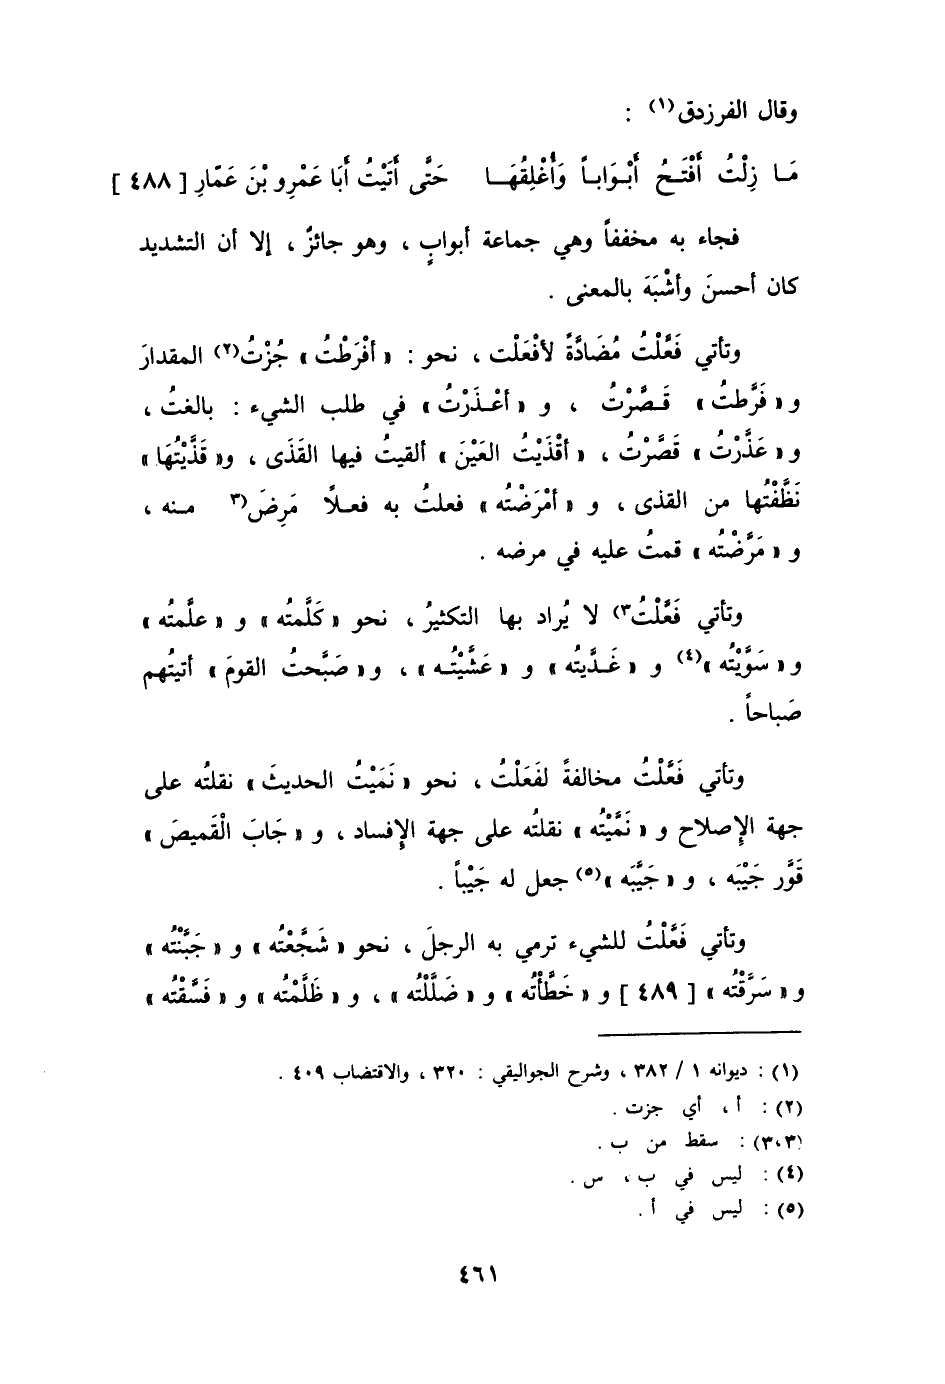 وقال الفرزدق(١) :
مَـا زِلْتُ أَفْتَـحُ أَبْـوَابـاً وَأُغْلِقُهَـا حَتَّى أَتَيْتُ أَبَا عَمْرِو بْنَ عَمَّارِ [ ٤٨٨ ]
فجاء به مخففاً وهي جماعة أبوابٍ ، وهو جائزٌ ، إلا أن التشديد
كان أحسنَ وأشْبَهَ بالمعنى .
وتأتي فَعَّلْتُ مُضَادَّةً لأفْعَلْت ، نحو : « أفْرَطْتُ » جُزْتُ(٢) المقدارَ
و « فَرَّطتُ » قَـصَّرْتُ ، و « أعْـذَرْتُ » في طلب الشيء : بالغتُ ،
و « عَذَّرْتُ » قَصَّرْتُ ، « أقْذَيْتُ العَيْنَ » ألقيتُ فيها القَذَى ، و« قَذَّيْتُهَا »
نَظَّفْتُها من القذى ، و « أمْرَضْتُه » فعلتُ به فعـلاً مَرِضَ(٣ مـنه ،
و « مَرَّضْتُه » قمتُ عليه في مرضه .
وتأتي فَعَّلْتُ٣) لا يُراد بها التكثيرُ ، نحو « كَلَّمتُه » و « علَّمتُه »
و « سَوَّيْتُه »(٤) و « غَـدَّيتُه » و « عَشَّيْتُـه » ، و « صَبَّحتُ القومَ » أتيتُهم
صَباحاً .
وتأتي فَعَّلْتُ مخالفةً لفَعَلْتُ ، نحو « نَمَيْتُ الحديثَ » نقلتُه على
جهة الإصلاح و « نَمَّيْتُه » نقلتُه على جهة الإفساد ، و « جَابَ الْقَميصَ »
قَوَّر جَيْبَه ، و « جَيَّبَه »(٥) جعل له جَيْباً .
وتأتي فَعَّلْتُ للشيء ترمي به الرجلَ ، نحو « شَجَّعْتُه » و « جَبَّنْتُه »
و « سَرَّقْتُه » [ ٤٨٩ ] و « خَطَّأْتُه » و « ضَلَّلْتُه » ، و « ظَلَّمْتُه » و « فَسَّقْتُه »
(١) : ديوانه ١ / ٣٨٢ ، وشرح الجواليقي : ٣٢٠ ، والاقتضاب ٤٠٩ .
(٢) : أ ، أي جزت .
(٣،٣) : سقط من ب .
(٤) : ليس في ب ، س .
(٥) : ليس في أ .
٤٦١